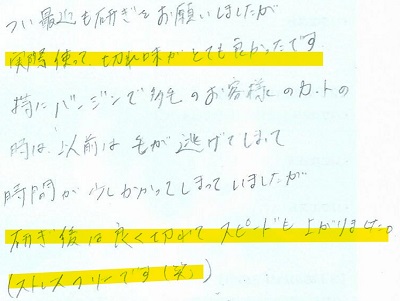 つい最近も研ぎをお願いしましたが
実際使って、切れ味がとても良かったです
特にバージンで多毛のお客様のカットの
時は、以前は毛が逃げてしまって
時間が少しかかってしまっていましたが
研ぎ後は良く切れてスピードも上がりました。
(ストレスフリーです(笑))